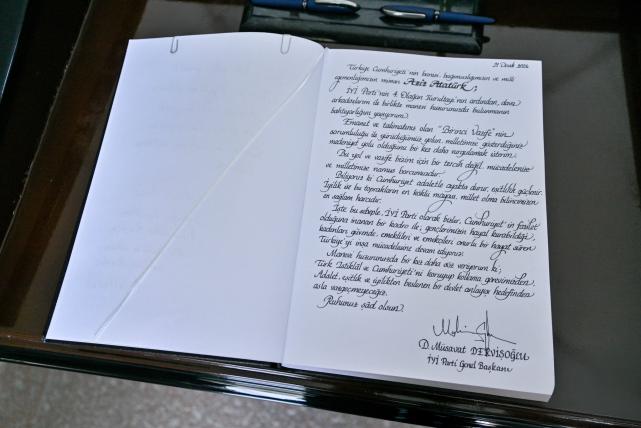 21 Ocak 2026
Türkiye Cumhuriyeti'nin banisi, bağımsızlığımızın ve milli
egemenliğimizin mimarı Aziz Atatürk;
İYİ Parti'nin 4. Olağan Kurultayı'nın ardından, dava
arkadaşlarım ile birlikte manevi huzurunda bulunmanın
bahtiyarlığını yaşıyorum.
Emanet ve talimatınız olan "Birinci Vazife"nin
sorumluluğu ile yürüdüğümüz yolun, milletimize gösterdiğiniz
medeniyet yolu olduğunu bir kez daha vurgulamak isterim.
Bu yol ve vazife bizim için bir tercih değil, mücadelenize
ve milletimize namus borcumuzdur.
Biliyoruz ki Cumhuriyet adaletle ayakta durur, eşitlikle güçlenir.
İyilik ise bu toprakların en köklü mayası, millet olma bilincimizin
en sağlam harcıdır.
İşte bu sebeple, İYİ Parti olarak bizler, Cumhuriyet'in fazilet
olduğuna inanan bir kadro ile; gençlerimizin hayal kurabildiği,
kadınları güvende, emeklileri ve emekçileri onurlu bir hayat süren
Türkiye'yi inşa mücadelesine devam ediyoruz.
Manevi huzurunuzda bir kez daha söz veriyorum ki;
Türk İstiklâl ve Cumhuriyeti'ni koruyup kollama görevimizden,
Adalet, eşitlik ve iyilikten beslenen bir devlet anlayışı hedefinden
asla vazgeçmeyeceğiz.
Ruhunuz şâd olsun.
D. Müsavat DERVİŞOĞLU
İYİ Parti Genel Başkanı